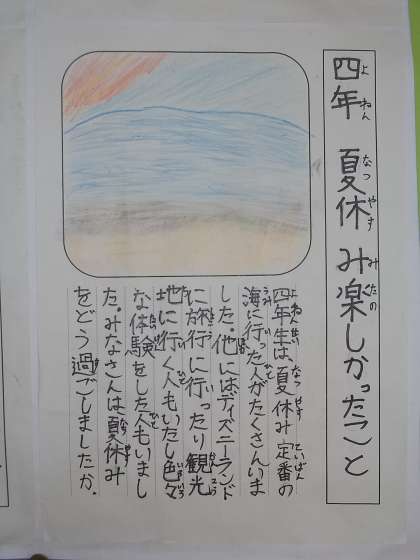 四年 夏休み楽しかったこと
よねん なつやす みたの
四年生は夏休み定番の
海に行った人がたくさんいま
した。他にはディズニーランド
に旅行に行ったり観光
地に行く人もいたし色々
な体験をした人もいまし
た。みなさんは夏休み
をどう過ごしましたか。